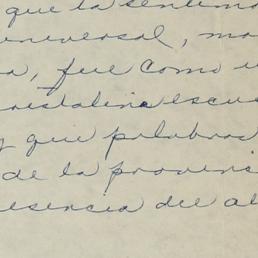 que la sentimo
universal, ma
a, fue como u
cristalina escu
y que palabras
de la provinc
esencia del al